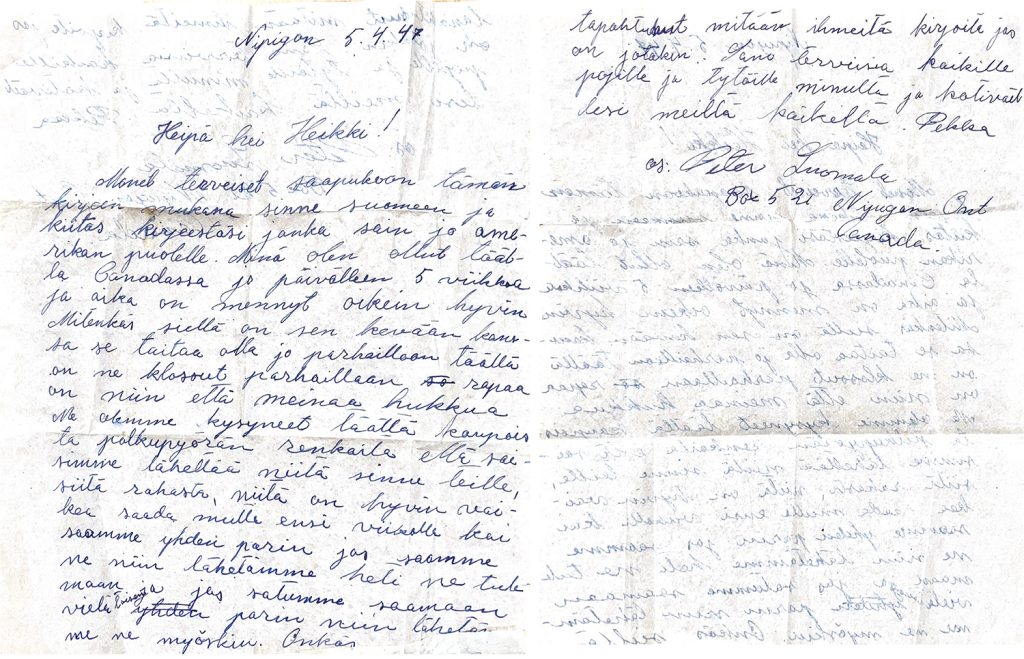 Nipigon 5.4.47
Heipä hei Heikki!
Monet terveiset saapukoon tämän
kirjeen mukana sinne suomeen ja
kiitos kirjeestäsi jonka sain jo ame-
rikan puolelle. Minä olen ollut tääl-
lä Canadassa jo päivälleen 5 viikkoa
ja aika on mennyt oikein hyvin
Mitenkäs siellä on sen kevään kans-
sa se taitaa olla jo parhaillaan täällä
on ne klosout parhaillaan rapaa
on niin että meinaa hukkua
Me olemme kysyneet täältä kaupois
ta polkupyörän renkaita että sai-
simme lähettää niitä sinne teille,
siitä rahasta, niitä on hyvin vai-
kea saada mutta ensi viikolla kai
saamme yhden parin jos saamme
ne niin lähetämme heti ne tule
maan ja jos satumme saamaan
vielä toisen yhden parin niin lähetäm
me ne myöskin. Onkos
tapahtunut mitään ihmeitä kirjoita jos
on jotakin. Sano terveisiä kaikille
pojille ja tytöille minulta ja kotiväel
lesi meiltä kaikelta. Pekka
os. Peter Luomala
Box 522 Nipigon Ont
Canada.